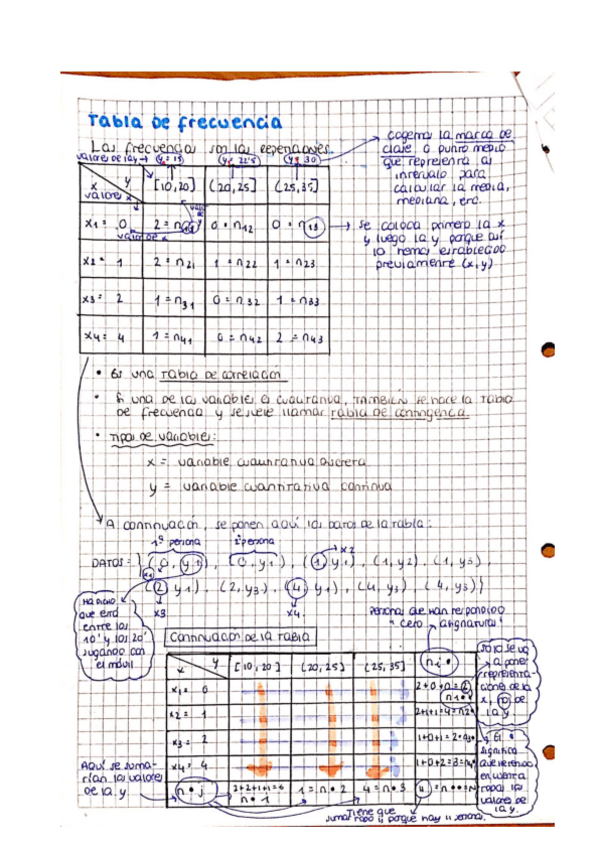 Tabla de frecuencia
Las frecuencias son las repeticiones.
valores de la y → (y₁ = 15) (y₂ = 22'5) (y₃ = 30)
Cogemos la marca de
clase o punto medio
que representa al
intervalo para
calcular la media,
mediana, etc.
x y [10,20] (20,25] (25,35]
valores x
x1 = 0 2 = n11 0 = n12 0 = n13
valor de x
Se coloca primero la x
y luego la y porque así
lo hemos establecido
previamente (x,y)
x2 = 1 2 = n21 1 = n22 1 = n23
x3 = 2 1 = n31 0 = n32 1 = n33
x4 = 4 1 = n41 0 = n42 2 = n43
• Es una tabla de correlación
• Si una de las variables es cualitativa, TAMBIÉN se hace la tabla
de frecuencia y se suele llamar tabla de contingencia.
• Tipos de variables:
x = variable cuantitativa discreta
y = variable cuantitativa continua
A continuación, se ponen aquí los datos de la tabla:
1ª persona 2ª persona
x2
DATOS = {(0, y1), (0, y1), (1, y1), (1, y2), (1, y3),
x1
(2, y1), (2, y3), (4, y1), (4, y3), (4, y3)}
x3 x4
Ha dicho
que está
entre los
10' y los 20'
jugando con
el móvil
Personas que han respondido
"cero" asignaturas
Continuación de la tabla
x y [10,20] (20,25] (25,35] ni•
x1 = 0 2+0+0=2
n1•
x2 = 1 2+1+1=4=n2•
x3 = 2 1+0+1=2=n3•
x4 = 4 1+0+2=3=n4•
n•j 2+2+1+1=6 1=n•2 4=n•3 11=n••
n•1
Solo se va
a poner
representa-
ciones de la
x, no de
la y
El •
significa
que tenemos
en cuenta
todos los
valores de
la y.
Aquí se suma-
rían los valores
de la y
Tiene que
sumar todo 11 porque hay 11 personas.